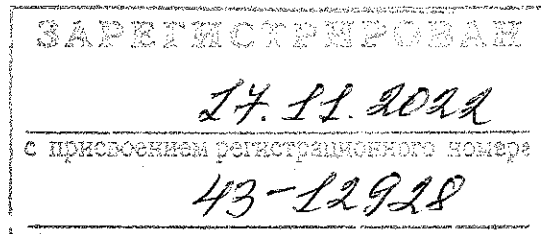 ЗАРЕГИСТРИРОВАН
17.11.2022
с присвоением регистрационного номера
43-12928